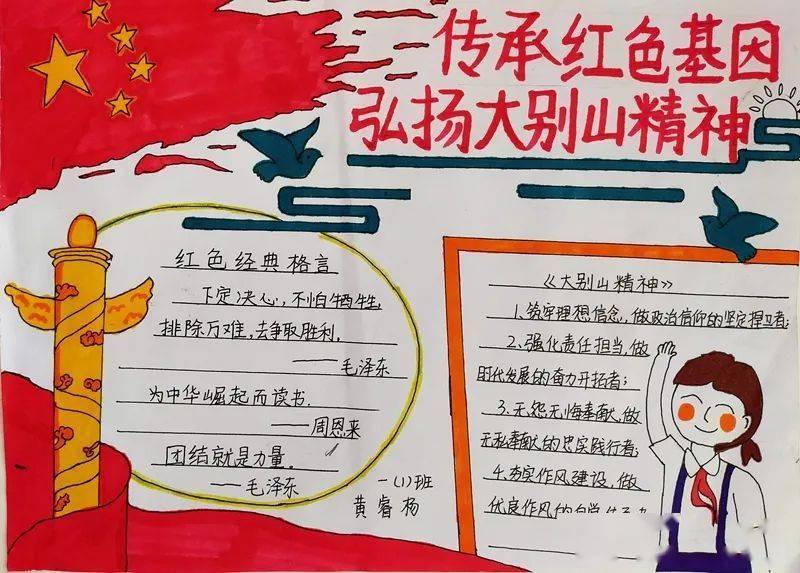 传承红色基因
弘扬大别山精神
红色经典格言
下定决心,不怕牺牲,
排除万难,去争取胜利。
——毛泽东
为中华崛起而读书.
——周恩来
团结就是力量.
——毛泽东
一(1)班
黄睿杨
《大别山精神》
1.筑牢理想信念,做政治信仰的坚定捍卫者;
2.强化责任担当,做
时代发展的奋力开拓者;
3.无怨无悔奉献,做
无私奉献的忠实践行者;
4.夯实作风建设,做
优良作风的